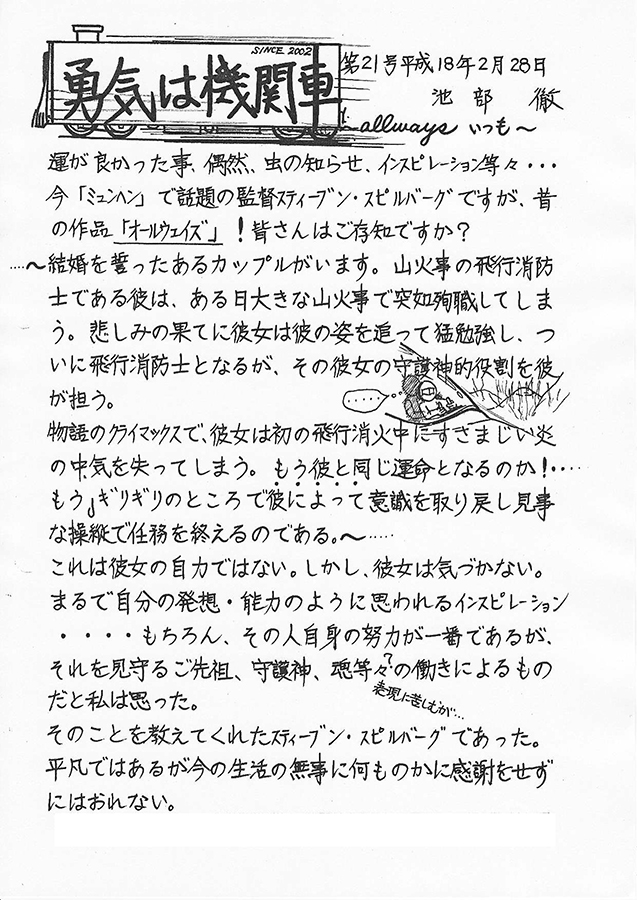 SINCE 2002
勇気は機関車
第21号平成18年2月28日
池部 徹
〜allways いつも〜
運が良かった事、偶然、虫の知らせ、インスピレーション等々・・・
今「ミュンヘン」で話題の監督スティーブン・スピルバーグですが、昔
の作品「オールウェイズ」!皆さんはご存知ですか?
....〜結婚を誓ったあるカップルがいます。山火事の飛行消防
士である彼は、ある日大きな山火事で突如殉職してしま
う。悲しみの果てに彼女は彼の姿を追って猛勉強し、つ
いに飛行消防士となるが、その彼女の守護神的役割を彼
が担う。
......
物語のクライマックスで、彼女は初の飛行消火中にすさまじい炎
の中気を失ってしまう。もう彼と同じ運命となるのか!・・・・
もうギリギリのところで彼によって意識を取り戻し見事
な操縦で任務を終えるのである。〜.....
これは彼女の自力ではない。しかし、彼女は気づかない。
まるで自分の発想・能力のように思われるインスピレーション
・・・・もちろん、その人自身の努力が一番であるが、
それを見守るご先祖、守護神、魂等々?の働きによるもの
表現に苦しむが…
だと私は思った。
そのことを教えてくれたスティーブン・スピルバーグであった。
平凡ではあるが今の生活の無事に何ものかに感謝をせず
にはおれない。